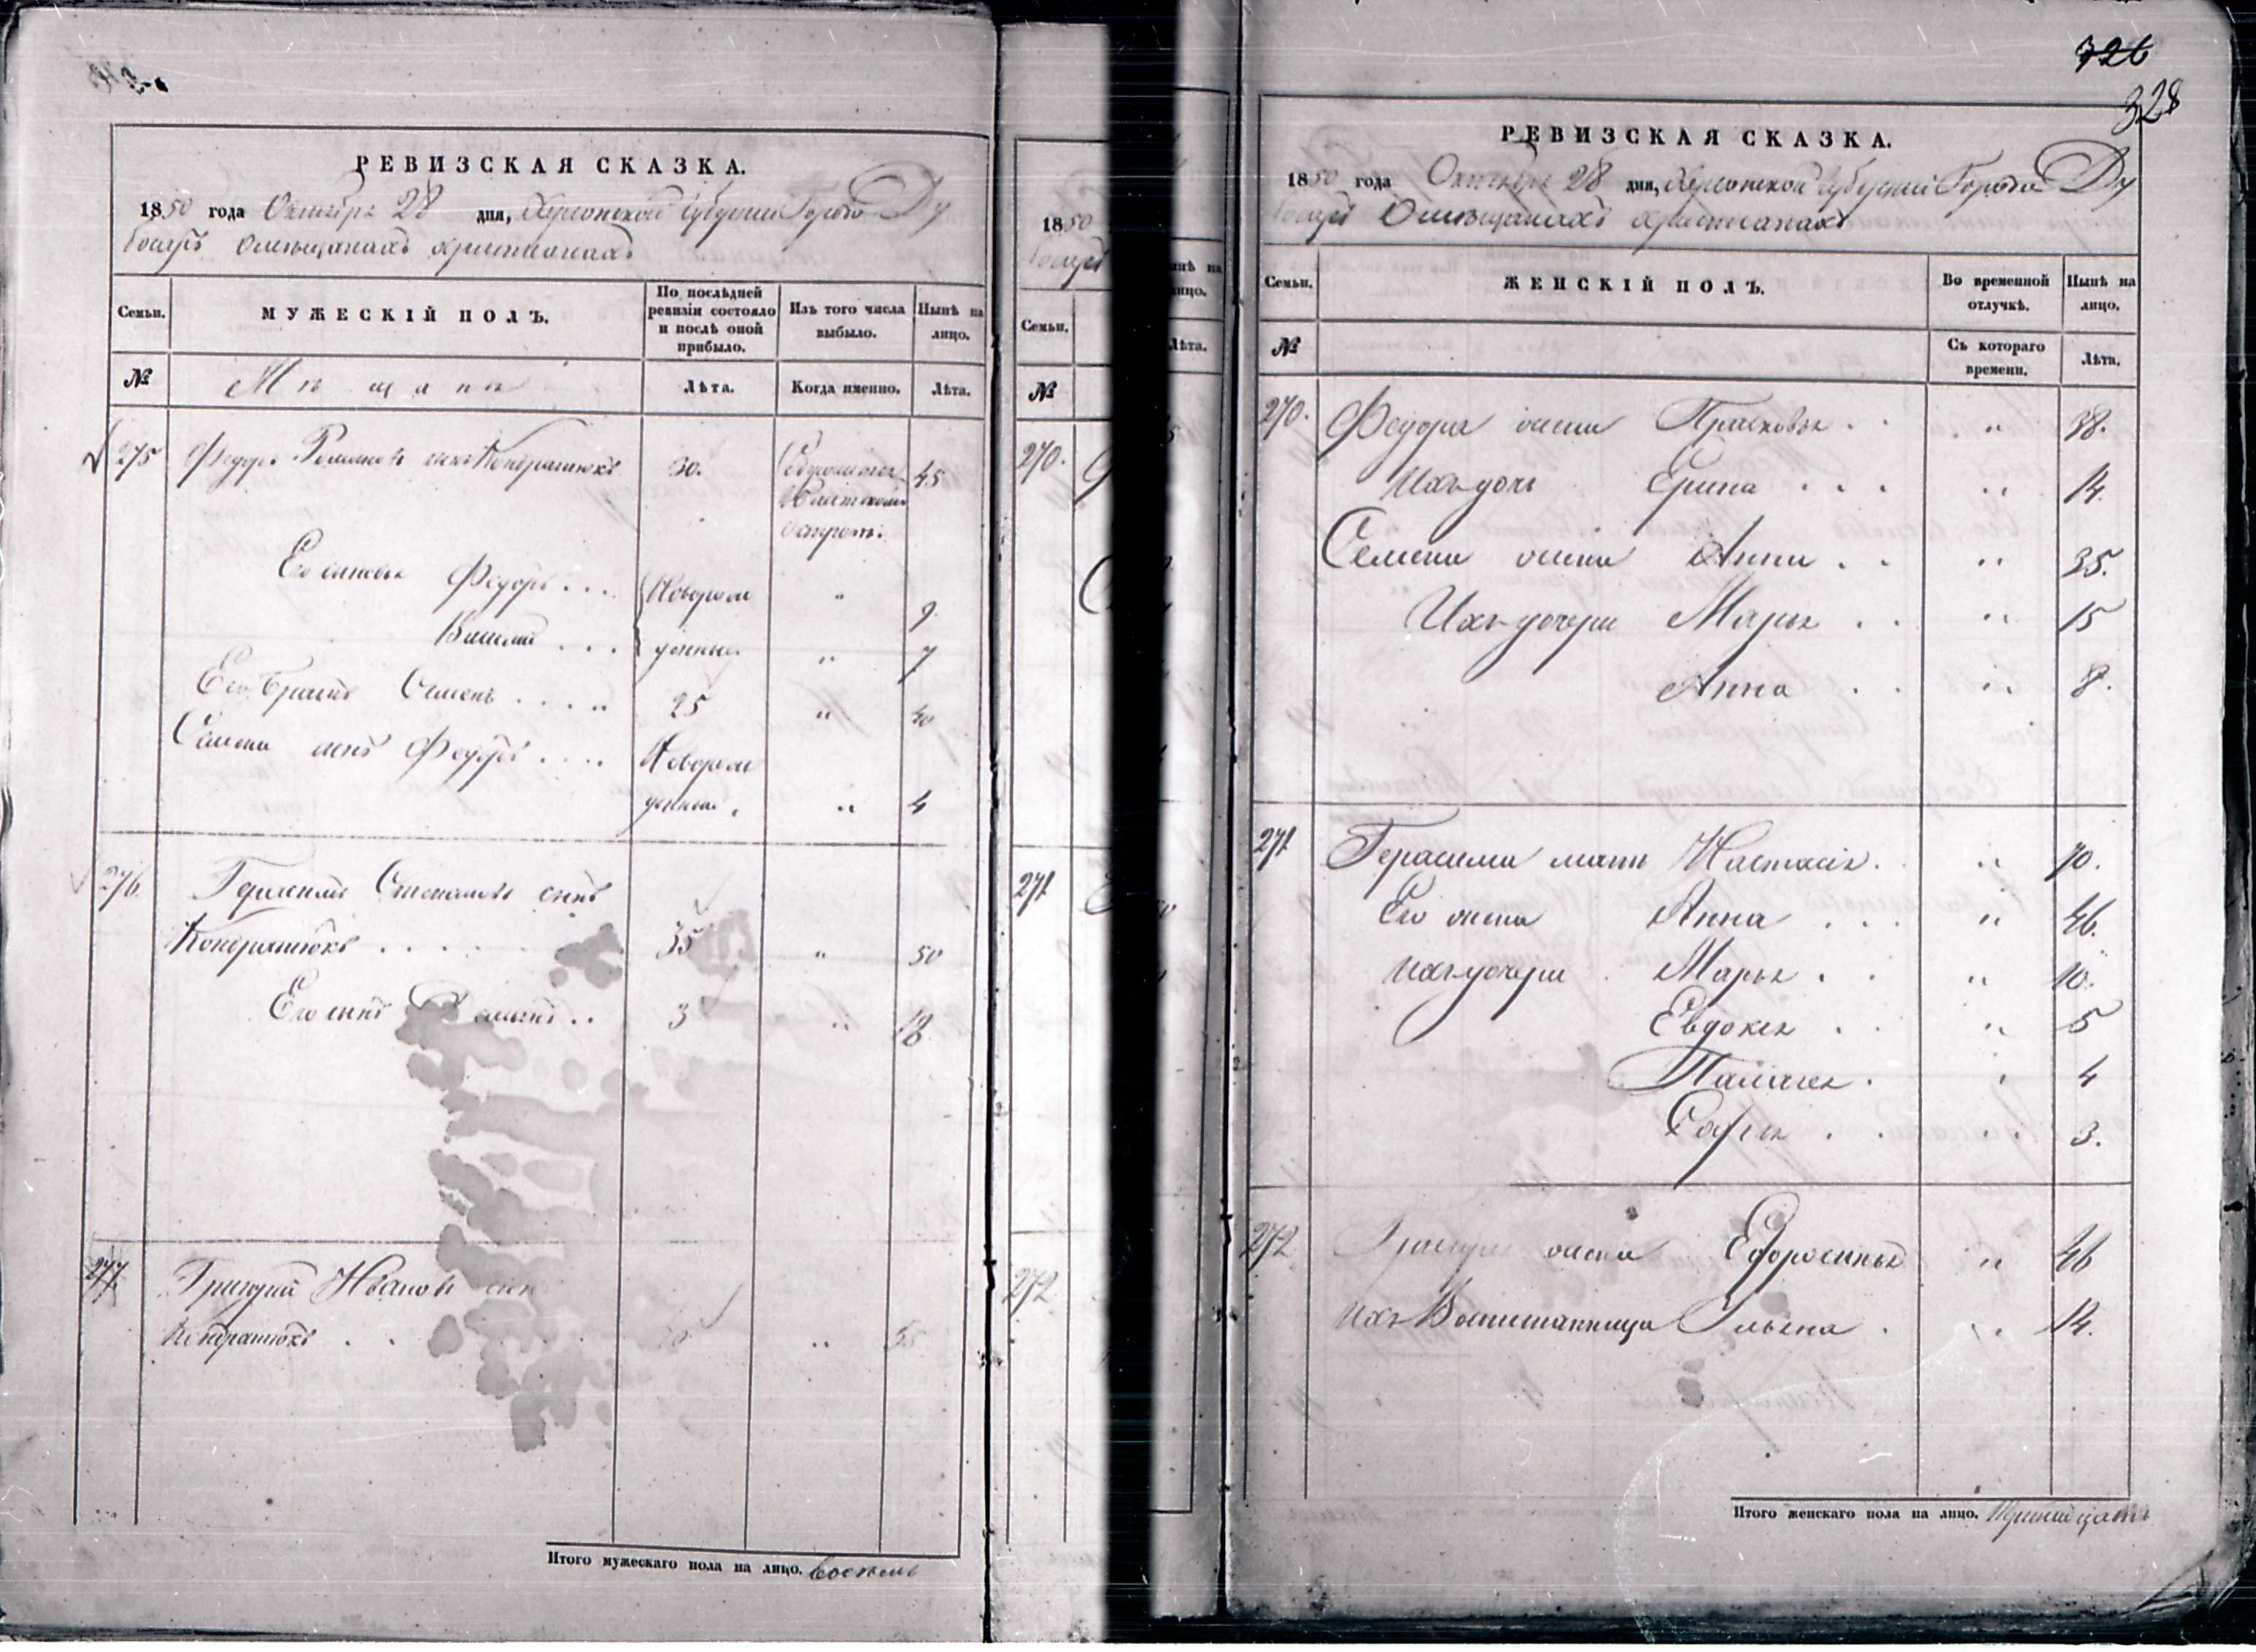 РЕВИЗСКАЯ СКАЗКА.
1850 года Октября 28 дня, Херсонской Губернии Города Ду
босаръ Омѣщанахъ христианахъ
Семьи. МУЖЕСКІЙ ПОЛЪ. По послѣдней ревизіи состояло и послѣ оной прибыло. Изъ того числа выбыло. Нынѣ на лицо.
№ Мѣщане Лѣта. Когда именно. Лѣта.
275 Федоръ Романовъ сынъ Кондратюкъ 30. 45
острогѣ.
Его сыновья Федоръ . . . Новорож „ 9.
Василий . . . денные „ 7
Его Братъ Семенъ . . . . 25 „ 40
Семена сынъ Федоръ . . . . Новорож
денный. „ 4
276. Герасимъ Степановъ сынъ
Кондратюкъ . . . . . 35 „ 50
Его сынъ . . 3 „ 18
277. Григорий Ивановъ сын
Кондратюкъ . . „
Итого мужескаго пола на лицо. восемь
1850
босаръ
Семьи.
№
270.
271
272
нынѣ на
лицо.
Лѣта.
726
328
РЕВИЗСКАЯ СКАЗКА.
1850 года Октября 28 дня, Херсонской Губернии Города Ду
босаръ Омѣщанахъ христианахъ
Семьи. ЖЕНСКІЙ ПОЛЪ. Во временной отлучкѣ. Нынѣ на лицо.
№ Съ котораго времени. Лѣта.
270. Федора жена Прасковья . . „ 38.
Ихъ дочь Ерина . . . „ 14.
Семена жена Анна . . „ 35.
Ихъ дочери Марья . . „ 15
Анна . . „ 8.
271 Герасима мать Настасія . „ 70.
Его жена Анна . . . „ 46.
Ихъ дочери Марья . . „ 10.
Евдокея . . „ 5
Палагея . „ 4
Софея . . „ 3.
272 Григория жена Ефросинья „ 46
Ихъ Воспитанница Ульяна . „ 14.
Итого женскаго пола на лицо. тринадцать